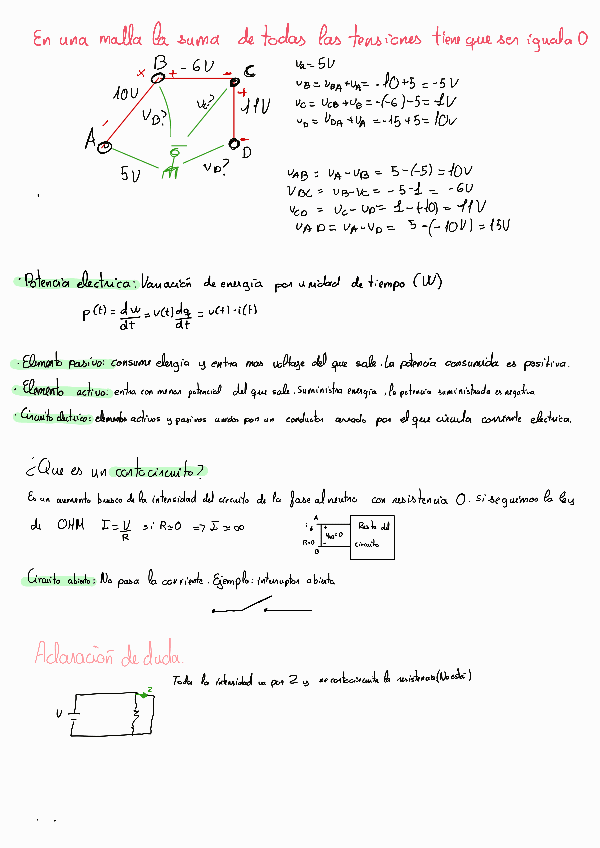 En una malla la suma de todas las tensiones tiene que ser igual a 0
B + -6V - C
x
10V
VB?
Vc?
+
11V
-
A
-
D
5V
VD?
VA = 5V
VB = VBA + VA = -10+5 = -5V
VC = VCB + VB = -(-6)-5 = 1V
VD = VDA + VA = -15+5 = 10V
VAB = VA - VB = 5-(-5) = 10V
VBC = VB - VC = -5-1 = -6V
VCD = VC - VD = 1-(-10) = 11V
VAD = VA - VD = 5-(-10V) = 15V
· Potencia electrica: Variación de energía por unidad de tiempo (W)
p(t) = dw/dt = v(t) dq/dt = v(t) · i(t)
· Elemento pasivo: consume elergia y entra mas voltage del que sale. La potencia consumida es positiva.
· Elemento activo: entra con menos potencial del que sale. Suministra energia, la potencia suministrada es negativa
· Circuito electrico: elementos activos y pasivos unidos por un conductor cerrado por el que circula corriente electrica.
¿Que es un cortocircuito?
Es un aumento brusco de la intensidad del circuito de la fase al neutro con resistencia 0. Si seguimos la ley
de OHM I = V/R si R=0 => I ≈ ∞
A
i
R=0
B
+
-
Resto del
circuito
Circuito abierto: No pasa la corriente. Ejemplo: interruptor abierto
Aclaración de duda.
Toda la intensidad va por 2 y se cortocircuita la resistencia (No está)
2
V